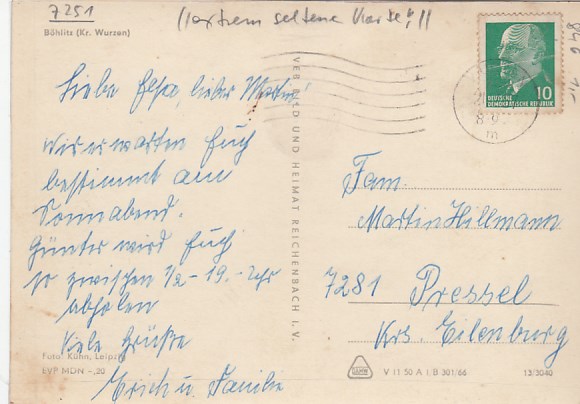 7251
(extrem seltene Karte!!!
846
1,-
Böhlitz (Kr. Wurzen)
DEUTSCHE
DEMOKRATISCHE REPUBLIK
10
Liebe Elsa, lieber Martin!
Wir erwarten Euch
bestimmt am
Sonnabend.
Günter wird Euch
so zwischen 1/2 - 19.- Uhr
abholen
Viele Grüße
Erich u. Familie
Foto: Kühn, Leipzig
EVP MDN -,20
VEB BILD UND HEIMAT REICHENBACH I. V.
Fam.
Martin Hillmann
7281 Pressel
Krs. Eilenburg
V 11 50 A 1 B 301/66
13/3040